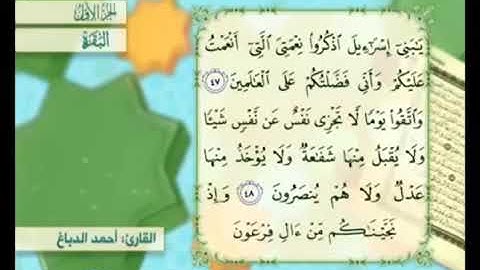 الجزء الأول
البقرة
يَـٰبَنِىٓ إِسْرَٰٓءِيلَ ٱذْكُرُوا۟ نِعْمَتِىَ ٱلَّتِىٓ أَنْعَمْتُ
عَلَيْكُمْ وَأَنِّى فَضَّلْتُكُمْ عَلَى ٱلْعَـٰلَمِينَ ٤٧
وَٱتَّقُوا۟ يَوْمًا لَّا تَجْزِى نَفْسٌ عَن نَّفْسٍ شَيْـًٔا
وَلَا يُقْبَلُ مِنْهَا شَفَـٰعَةٌ وَلَا يُؤْخَذُ مِنْهَا
عَدْلٌ وَلَا هُمْ يُنصَرُونَ ٤٨ وَإِذْ
نَجَّيْنَـٰكُم مِّنْ ءَالِ فِرْعَوْنَ
القارئ: أحمد الدباغ